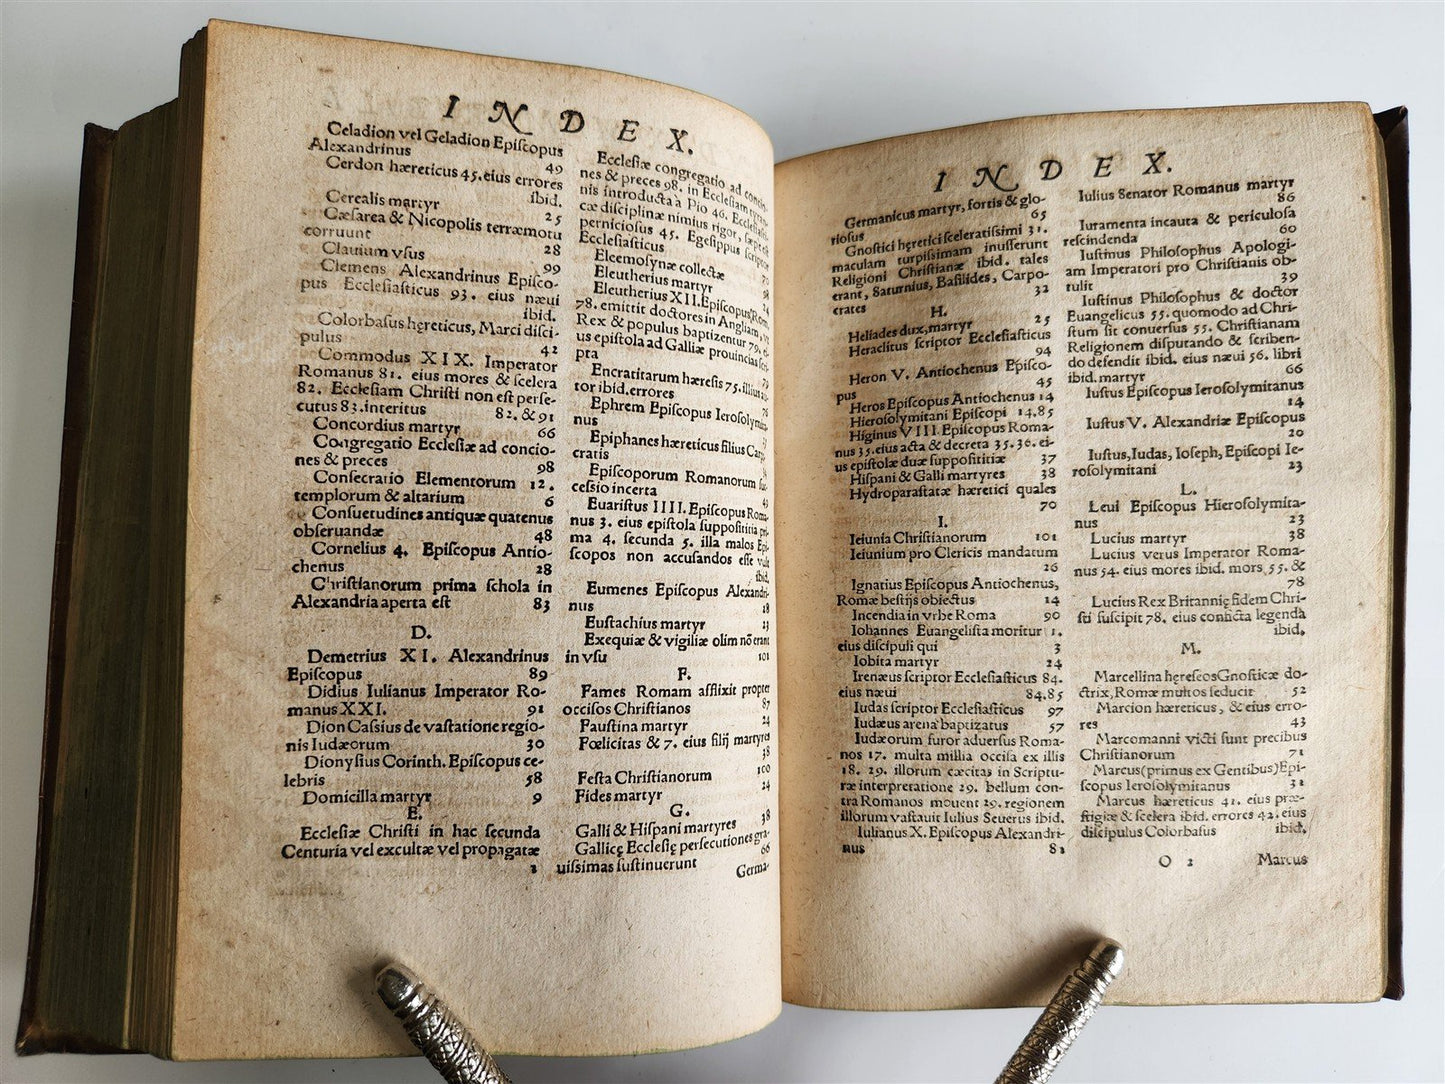 INDEX.
Celadion vel Geladion Episcopus
Alexandrinus 49
Cerdon hæreticus 45. eius errores
ibid.
Cerealis martyr 25
Cæsarea & Nicopolis terræmotu
corruunt 28
Clauium vsus 99
Clemens Alexandrinus Episco-
pus Ecclesiasticus 93. eius næui
ibid.
Colorbasus hęreticus, Marci disci-
pulus 42
Commodus XIX. Imperator
Romanus 81. eius mores & scelera
82. Ecclesiam Christi non est perse-
cutus 83. interitus 82. & 91
Concordius martyr 66
Congregatio Ecclesiæ ad concio-
nes & preces 98
Consecratio Elementorum 12.
templorum & altarium 6
Consuetudines antiquæ quatenus
obseruandæ 48
Cornelius 4. Episcopus Antio-
chenus 28
Christianorum prima schola in
Alexandria aperta est 83
D.
Demetrius XI. Alexandrinus
Episcopus 89
Didius Iulianus Imperator Ro-
manus XXI. 91
Dion Cassius de vastatione regio-
nis Iudæorum 30
Dionysius Corinth. Episcopus ce-
lebris 58
Domicilla martyr 9
E.
Ecclesiæ Christi in hac secunda
Centuria vel excultæ vel propagatæ
1
Ecclesiæ congregatio ad concio-
nes & preces 98. in Ecclesiam
nis introducta à Pio 46. Ecclesiasti-
cæ disciplinæ nimius rigor, sæpe est
perniciosus 45. Egesippus scriptor
Ecclesiasticus
Eleemosynæ collectæ
Eleutherius martyr
Eleutherius XII. Episcopus Rom.
78. emittit doctores in Angliam, vt
Rex & populus baptizentur 79. ei-
us epistola ad Galliæ prouincias scri-
pta 79
Encratitarum hæresis 75. illius au-
tor ibid. errores 76
Ephrem Episcopus Ierosolymita-
nus
Epiphanes hæreticus filius Carpo-
cratis
Episcoporum Romanorum suc-
cessio incerta
Euaristus IIII. Episcopus Roma-
nus 3. eius epistola supposititia pri-
ma 4. secunda 5. illa malos Epi-
scopos non accusandos esse vult
ibid.
Eumenes Episcopus Alexandri-
nus 28
Eustachius martyr 23
Exequiæ & vigiliæ olim nō erant
in vsu 101
F.
Fames Romam afflixit propter
occisos Christianos 87
Faustina martyr 24
Fœlicitas & 7. eius filij martyres
38
Festa Christianorum 100
Fides martyr 24
G.
Galli & Hispani martyres 38
Gallicę Ecclesię persecutiones gra-
uissimas sustinuerunt 66
Germa-
INDEX.
Germanicus martyr, fortis & glo-
riosus 65
Gnostici hęretici sceleratissimi 31.
maculam turpissimam inusserunt
Religioni Christianæ ibid. tales
erant, Saturnius, Basilides, Carpo-
crates 32
H.
Heliades dux, martyr 25
Heraclitus scriptor Ecclesiasticus
94
Heron V. Antiochenus Episco-
pus 45
Heros Episcopus Antiochenus 14
Hierosolymitani Episcopi 14. 85
Higinus VIII. Episcopus Roma-
nus 35. eius acta & decreta 35. 36. ei-
us epistolæ duæ supposititiæ 37
Hispani & Galli martyres 38
Hydroparastatæ hæretici quales
70
I.
Ieiunia Christianorum 101
Ieiunium pro Clericis mandatum
26
Ignatius Episcopus Antiochenus,
Romæ bestijs obiectus 14
Incendia in vrbe Roma 90
Iohannes Euangelista moritur 1.
eius discipuli qui 3
Iobita martyr 24
Irenæus scriptor Ecclesiasticus 84.
eius næui 84. 85
Iudas scriptor Ecclesiasticus 97
Iudæus arena baptizatus 57
Iudæorum furor aduersus Roma-
nos 17. multa millia occisa ex illis
18. 29. illorum cæcitas in Scriptu-
ræ interpretatione 29. bellum con-
tra Romanos mouent 29. regionem
illorum vastauit Iulius Seuerus ibid.
Iulianus X. Episcopus Alexandri-
nus 81
Iulius Senator Romanus martyr
86
Iuramenta incauta & periculosa
rescindenda 60
Iustinus Philosophus Apologi-
am Imperatori pro Christianis ob-
tulit 39
Iustinus Philosophus & doctor
Euangelicus 55. quomodo ad Chri-
stum sit conuersus 55. Christianam
Religionem disputando & scriben-
do defendit ibid. eius næui 56. libri
ibid. martyr 66
Iustus Episcopus Ierosolymitanus
14
Iustus V. Alexandriæ Episcopus
20
Iustus, Iudas, Ioseph, Episcopi Ie-
rosolymitani 23
L.
Leui Episcopus Hierosolymita-
nus 23
Lucius martyr 38
Lucius verus Imperator Roma-
nus 54. eius mores ibid. mors 55. &
78
Lucius Rex Britannię fidem Chri-
sti suscipit 78. eius conficta legenda
ibid.
M.
Marcellina hęreseos Gnosticæ do-
ctrix, Romæ multos seducit 52
Marcion hæreticus, & eius erro-
res 43
Marcomanni victi sunt precibus
Christianorum 71
Marcus (primus ex Gentibus) Epi-
scopus Ierosolymitanus 31
Marcus hæreticus 41. eius præ-
stigiæ & scelera ibid. errores 42. eius
discipulus Colorbasus ibid.
O 2 Marcus